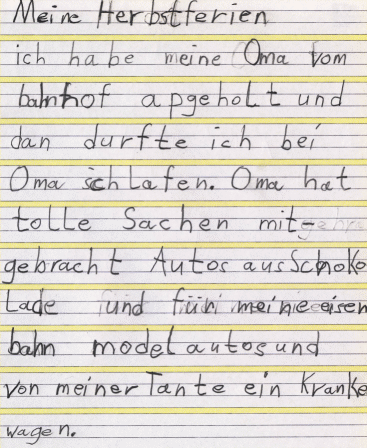 Meine Herbstferien
ich habe meine Oma vom
bahnhof apgeholt und
dan durfte ich bei
Oma schlafen. Oma hat
tolle Sachen mit-
gebracht Autos aus Schoko
Lade und für meine eisen
bahn model autos und
von meiner Tante ein Kranke
wagen.